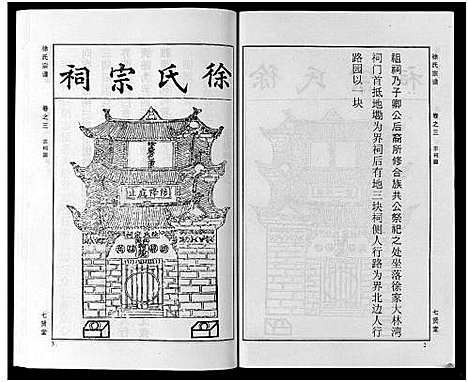 徐氏宗谱
卷之三
宗祠图
祖祠乃子卿公后裔所修合族共公祭祀之处坐落徐家大林湾
祠门首抵地塝为界祠后有地三块祠侧人行路为界北边人行
路园以一块
七贤堂
2
徐氏宗祠
徐氏宗祠
徐氏宗谱
卷之三
宗祠图
七贤堂
3